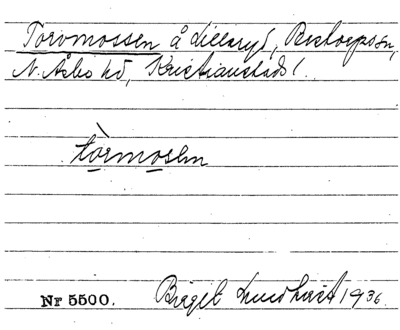 Torvmossen å Lillaryd, Perstorps sn,
N. Åsbo hd, Kristianstads l.
tòrmosen
Nr 5500. Birgit Lundkvist 1936